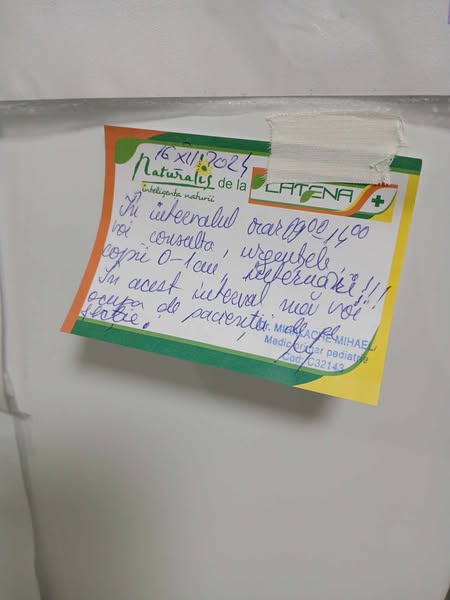 16 XII 2024
Naturalis de la CATENA
inteligența naturii
În intervalul orar 09⁰⁰ 14⁰⁰
voi consulta, urgențele,
copii 0-1 an, internări!!!
În acest interval mă voi
ocupa de pacienții de pe
secție.
Dr. MIHALACHE MIHAEL
Medic primar pediatrie
Cod: C32143